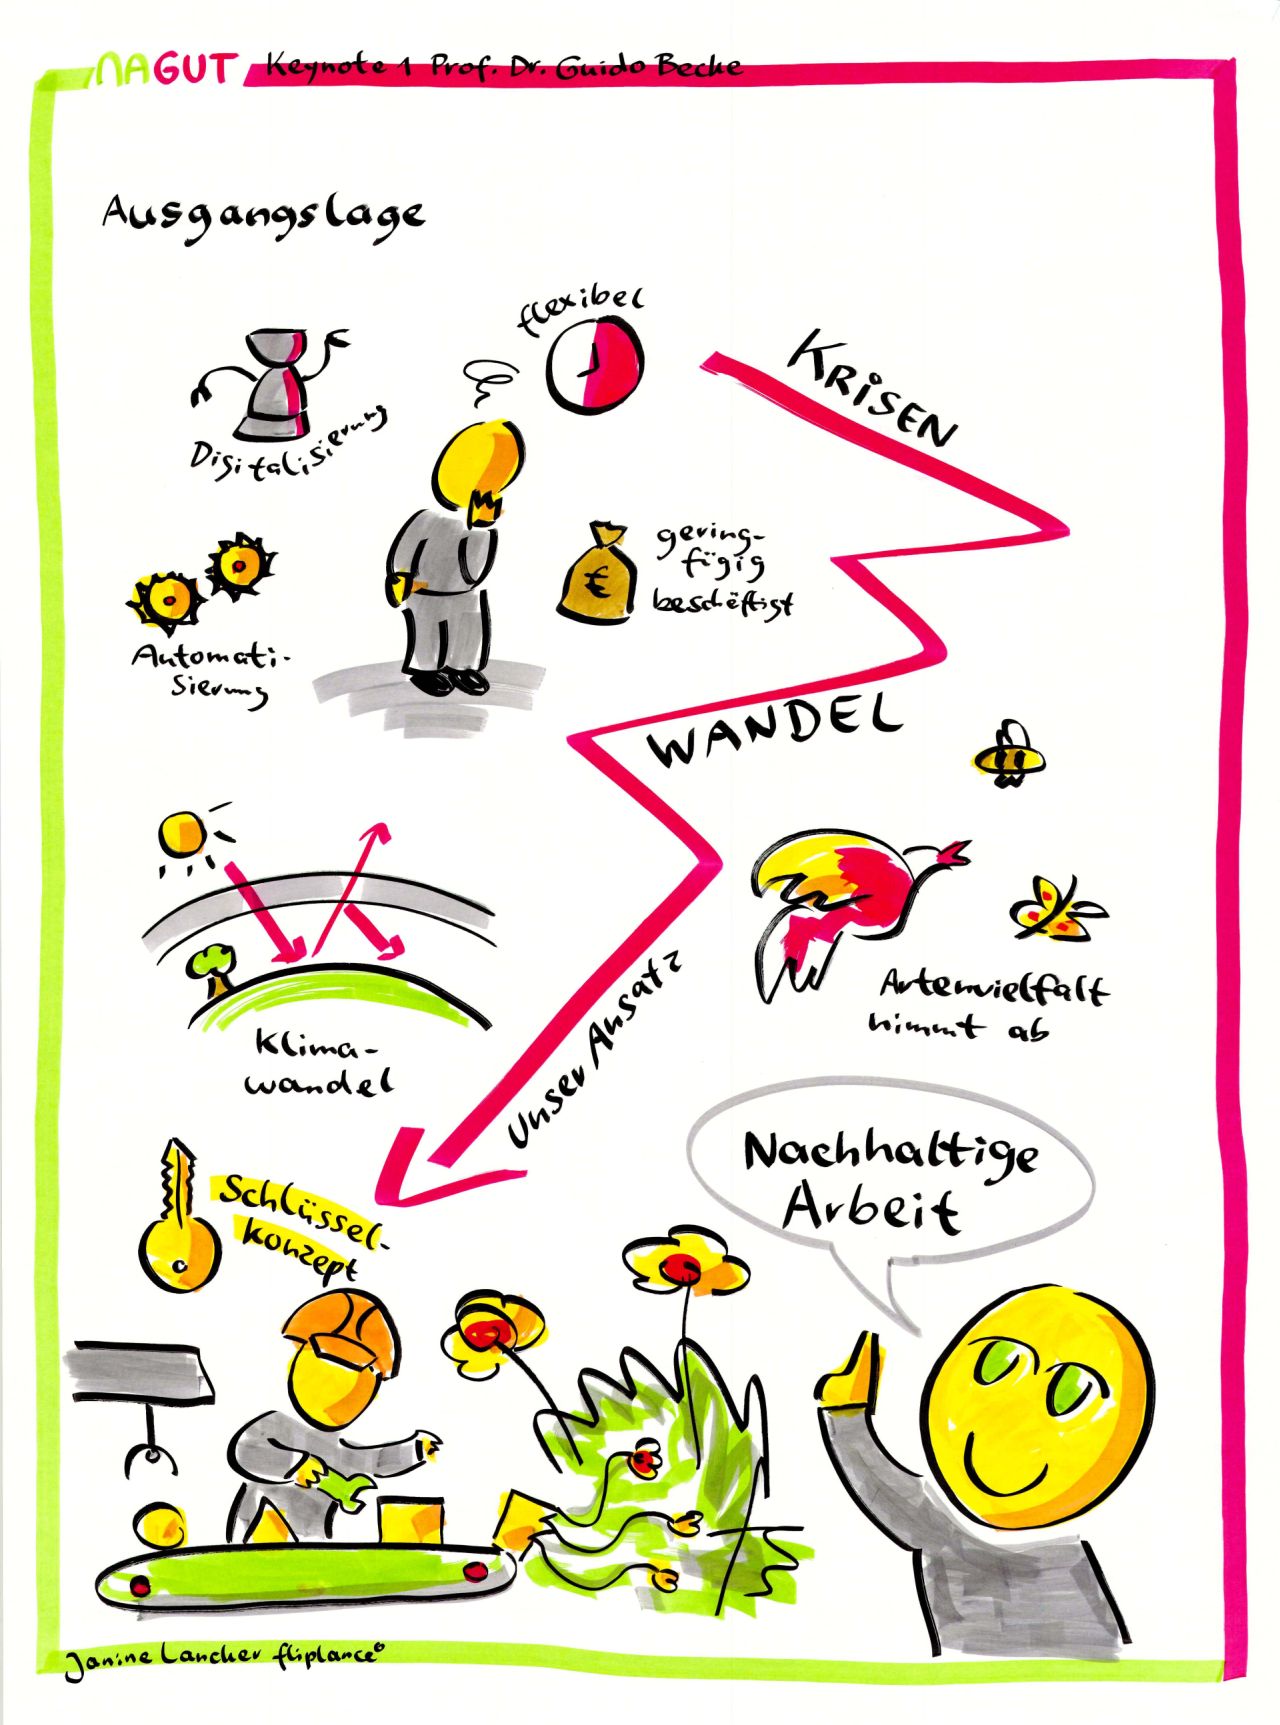 NAGUT Keynote 1 Prof. Dr. Guido Becke
Ausgangslage
flexibel
Digitalisierung
KRISEN
gering-
fügig
beschäftigt
Automati-
sierung
WANDEL
Artenvielfalt
nimmt ab
Klima-
wandel
Unser Ansatz
Nachhaltige
Arbeit
Schlüssel-
konzept
€
Janine Lancker fliplance®